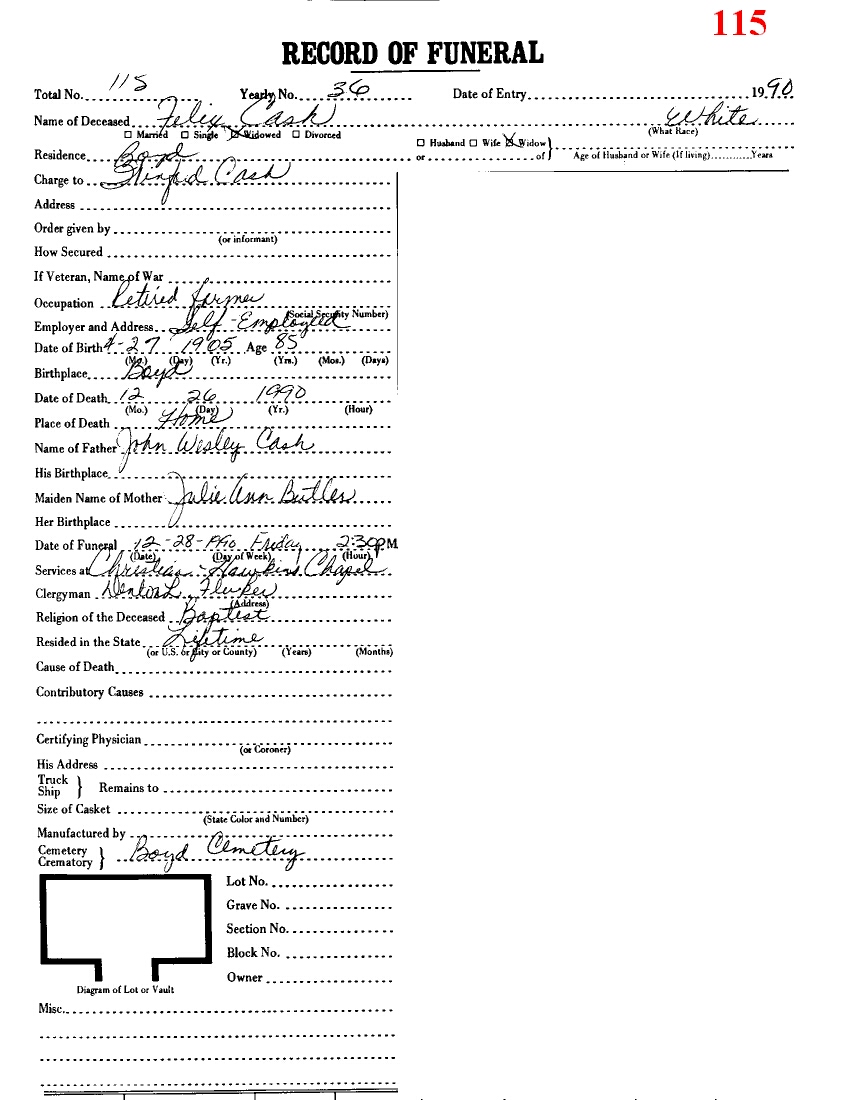 115
RECORD OF FUNERAL
Total No. 115 Yearly No. 36 Date of Entry 1990
Name of Deceased Felix Cash White
☐ Married ☐ Single ☒ Widowed ☐ Divorced (What Race)
☐ Husband ☐ Wife ☒ Widow
Residence Boyd or of Age of Husband or Wife (If living) Years
Charge to Cash
Address
Order given by
(or informant)
How Secured
If Veteran, Name of War
Occupation Retired farmer
(Social Security Number)
Employer and Address Self-Employed
Date of Birth 4-27 1905 Age 85
(Mo.) (Day) (Yr.) (Yrs.) (Mos.) (Days)
Birthplace Boyd
Date of Death 12 26 1990
(Mo.) (Day) (Yr.) (Hour)
Place of Death Home
Name of Father John Wesley Cash
His Birthplace
Maiden Name of Mother Julie Ann Butler
Her Birthplace
Date of Funeral 12-28-1990 Friday 2:30 PM
(Date) (Day of Week) (Hour)
Services at Christian-Hawkins Chapel
Clergyman
(Address)
Religion of the Deceased Baptist
Resided in the State Lifetime
(or U.S. or City or County) (Years) (Months)
Cause of Death
Contributory Causes
Certifying Physician
(or Coroner)
His Address
Truck
Ship } Remains to
Size of Casket
(State Color and Number)
Manufactured by
Cemetery
Crematory } Boyd Cemetery
Lot No.
Grave No.
Section No.
Block No.
Owner
Diagram of Lot or Vault
Misc.